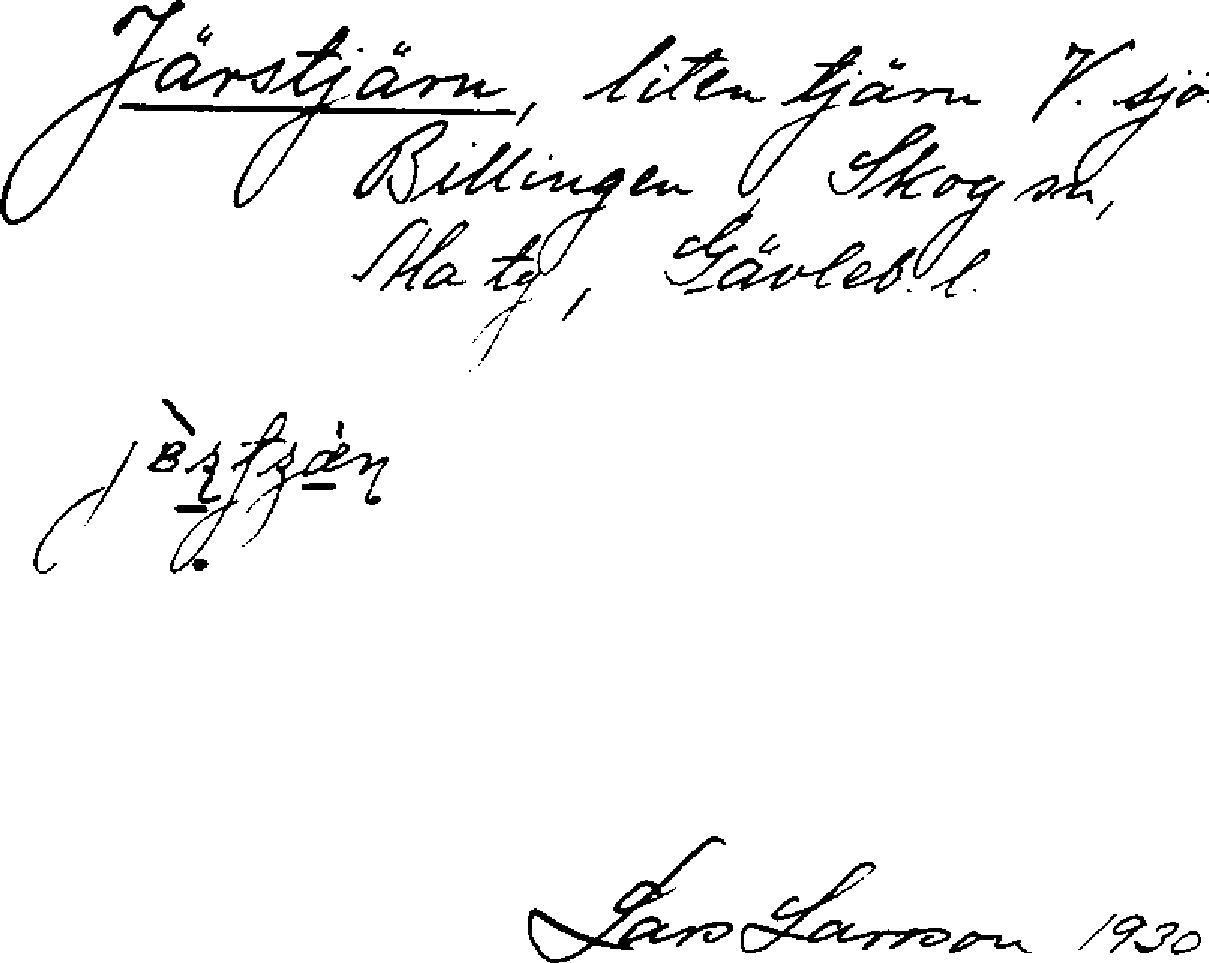 Järstjärn, liten tjärn V. sjö.
Billingen, Skog sn,
Ha tg, Gävleb. l.
Lars Larsson 1930